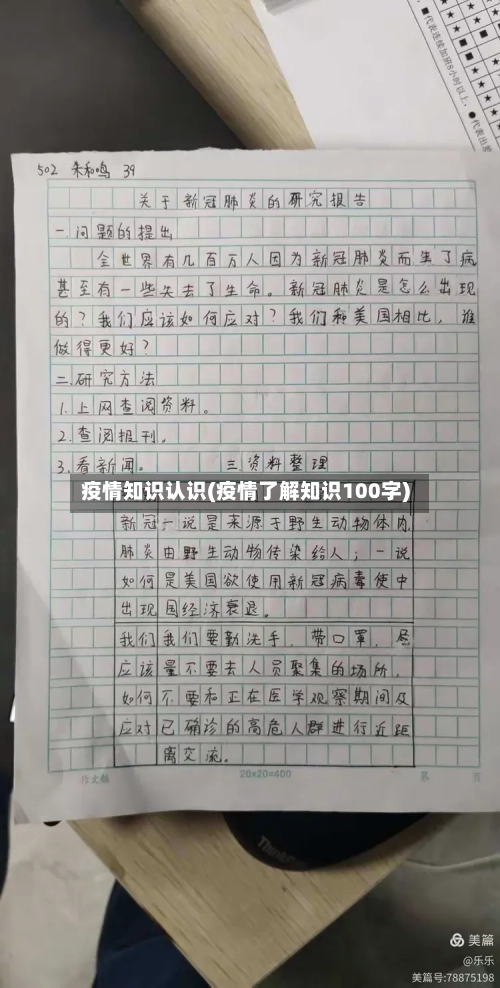 ■代表连续加班8小时以上，●代表出差
502 朱和鸣 39
关于新冠肺炎的研究报告
一.问题的提出
全世界有几百万人因为新冠肺炎而生了病
甚至有一些失去了生命。新冠肺炎是怎么出现
的？我们应该如何应对？我们和美国相比，谁
做得更好？
二.研究方法
1.上网查阅资料。
2.查阅报刊。
3.看新闻。 三.资料整理
疫情知识认识(疫情了解知识100字)
新冠 一说是来源于野生动物体内，
肺炎 由野生动物传染给人；一说
如何 是美国欲使用新冠病毒使中
出现 国经济衰退。
我们 我们要勤洗手，带口罩，尽
应该 量不要去人员聚集的场所，
如何 不要和正在医学观察期间及
应对 已确诊的高危人群进行近距
离交流。
作文纸 20×20=400 第 页
ThinkPad
美篇
@乐乐
美篇号:78875198